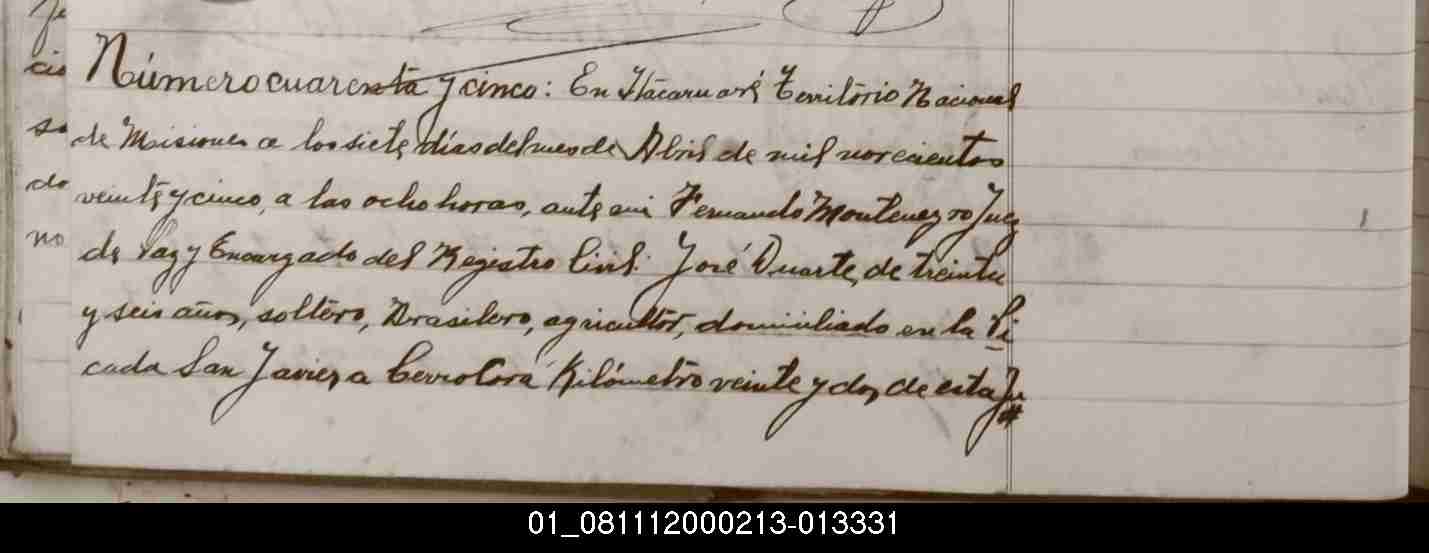 Número cuarenta y cinco: En Itácaruaré Território Nacional
de Misiones a los siete días del mes de Abril de mil novecientos
veinte y cinco, a las ocho horas, ante mi Fernando Montenegro Juez
de Paz y Encargado del Registro Civil: José Duarte, de treinta
y seis años, soltero, Brasilero, agricultor, domiciliado en la Pi
cada San Javier, a Cerro Corá Kilómetro veinte y dos, de esta Ju
cio
do
no
01_081112000213-013331